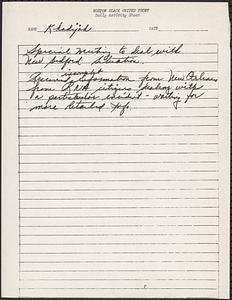 BOSTON BLACK UNITED FRONT
Daily Activity Sheet
NAME Khadijah DATE
Special meeting to deal with
New Bedford Situation.
Received information from New Orleans
from RNA citizens dealing with
a particular incident - waiting for
more detailed info.